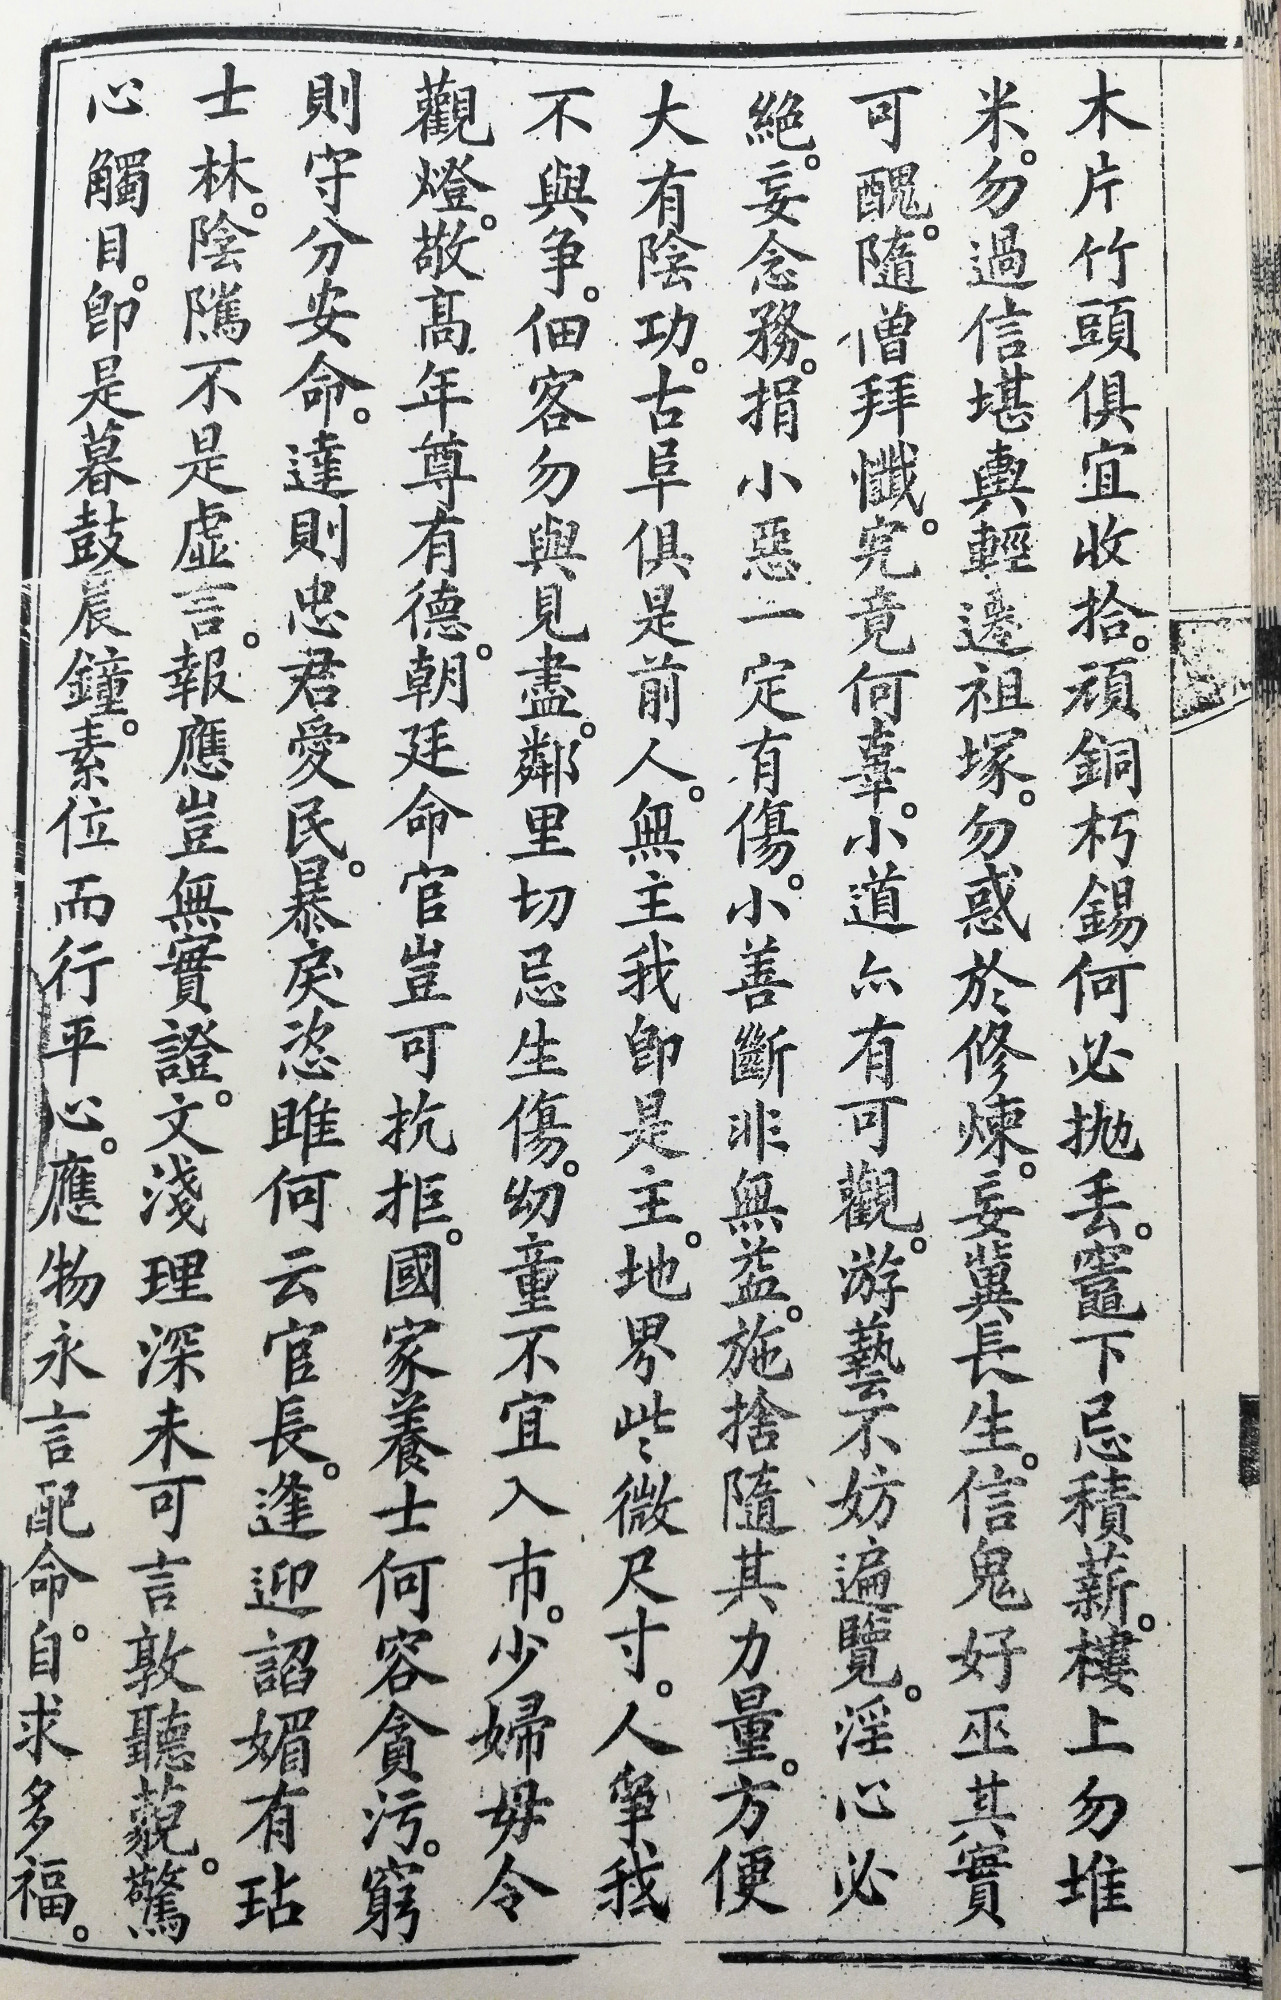 木片竹頭俱宜收拾。頑銅朽錫何必拋丢。竈下忌積薪。樓上勿堆
米。勿過信堪輿輕遷祖塚。勿惑於修煉。妄冀長生。信鬼好巫其實
可醜。隨僧拜懺。究竟何辜。小道亦有可觀。游藝不妨遍覽。淫心必
絕。妄念務。捐小惡一定有傷。小善斷非無益。施捨隨其力量。方便
大有陰功。古阜俱是前人。無主我即是主。地界些微尺寸。人爭我
不與争。佃客勿與見盡。鄰里切忌生傷。幼童不宜入市。少婦毋令
觀燈。敬高年尊有德。朝廷命官豈可抗拒。國家養士何容貪污。窮
則守分安命。達則忠君愛民。暴戾恣睢何云官長。逢迎謟媚有玷
士林。陰隲不是虛言。報應豈無實證。文淺理深未可言敦聽藐。驚
心觸目。即是暮鼓晨鐘。素位而行平心。應物永言配命。自求多福。